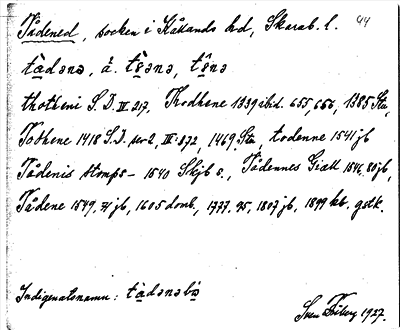 44
Tådened, socken i Kållands hd, Skarab. l.
tàdənə, ä. tə̀ənə, tə̂nə
thotheni S.D. IV 217, Thodhene 1339 ibid. 655, 656, 1385 Sta,
Tothene 1418 S.D. ser 2, III: 872, 1469 Sta, todenne 1541 jb
Tådenis stomps- 1540 Skjb s., Tådennes Giæll 1546, 80 jb,
Tådene 1549, 71 jb, 1605 domb, 1777, 95, 1807 jb, 1899 kb. gdk.
Indigenatsnamn: tàdənəbo
Sven 1927.